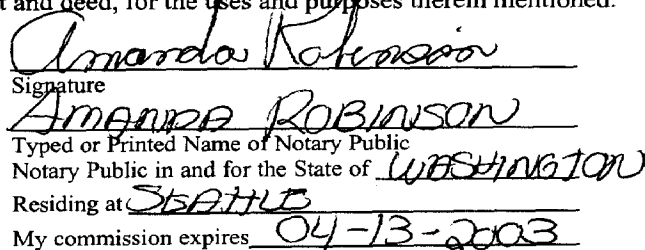 t and deed, for the uses and purposes therein mentioned.
Amanda Robinson
Signature
AMANDA ROBINSON
Typed or Printed Name of Notary Public
Notary Public in and for the State of WASHINGTON
Residing at SEATTLE
My commission expires 04-13-2003